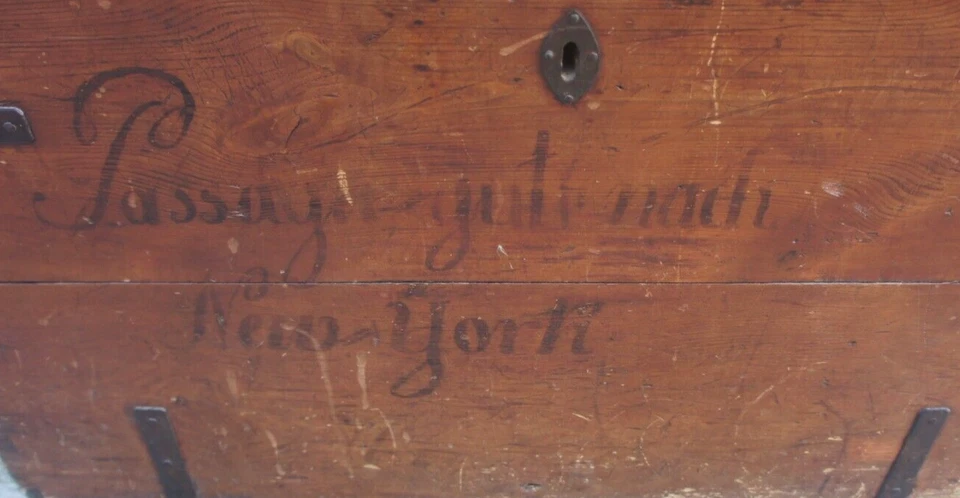 Passagir- nach
New-York